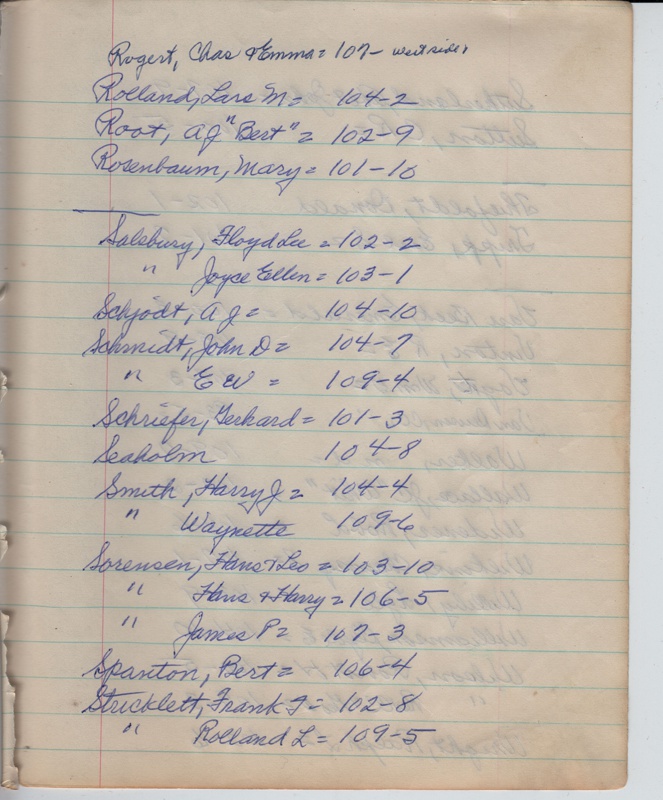 Rogert, Chas & Emma = 107- west side
Rolland, Lars M = 104-2
Root, A J "Bert" = 102-9
Rosenbaum, Mary = 101-10
Salsbury, Floyd Lee = 102-2
" Joyce Ellen = 103-1
Schjodt, A J = 104-10
Schmidt, John D = 104-7
" E W = 109-4
Schriefer, Gerhard = 101-3
Seaholm 104-8
Smith, Harry J = 104-4
" Waynette 109-6
Sorensen, Hans & Leo = 103-10
" Hans & Harry = 106-5
" James P = 107-3
Spanton, Bert = 106-4
Stricklett, Frank J = 102-8
" Rolland L = 109-5